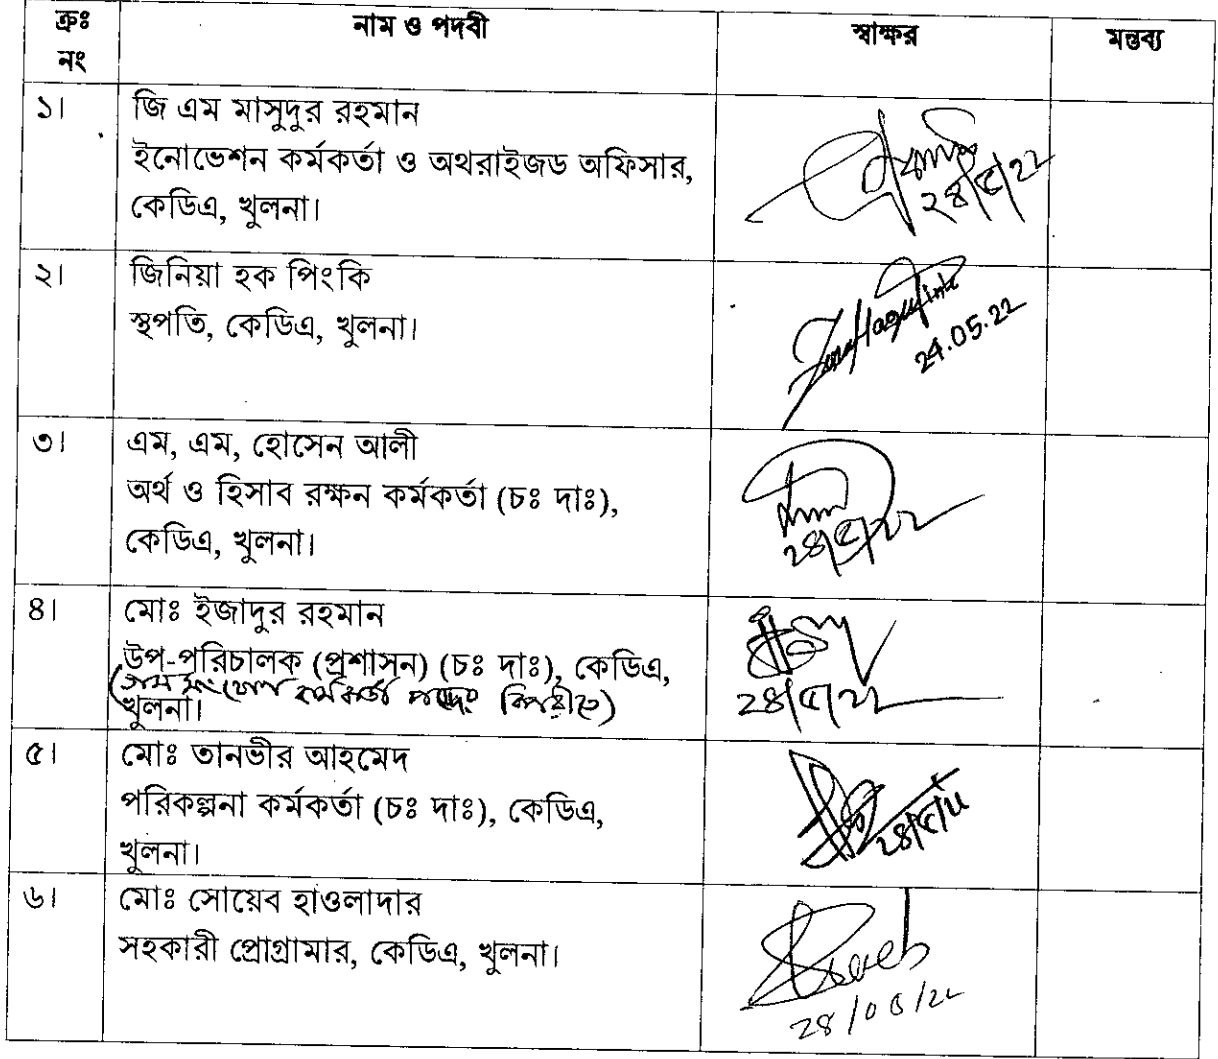 ক্রঃ নং নাম ও পদবী স্বাক্ষর মন্তব্য
১। জি এম মাসুদুর রহমান
ইনোভেশন কর্মকর্তা ও অথরাইজড অফিসার,
কেডিএ, খুলনা।
২৪/৫/২২
২। জিনিয়া হক পিংকি
স্থপতি, কেডিএ, খুলনা।
24.05.22
৩। এম, এম, হোসেন আলী
অর্থ ও হিসাব রক্ষন কর্মকর্তা (চঃ দাঃ),
কেডিএ, খুলনা।
২৪/৫/২২
৪। মোঃ ইজাদুর রহমান
উপ-পরিচালক (প্রশাসন) (চঃ দাঃ), কেডিএ,
কর্মকর্তা পদের বিপরীতে)
খুলনা।
২৪/৫/২২
৫। মোঃ তানভীর আহমেদ
পরিকল্পনা কর্মকর্তা (চঃ দাঃ), কেডিএ,
খুলনা।
২৪/৫/২২
৬। মোঃ সোয়েব হাওলাদার
সহকারী প্রোগ্রামার, কেডিএ, খুলনা।